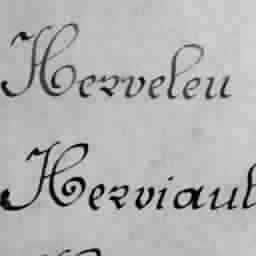 Herveleu
Herviaul